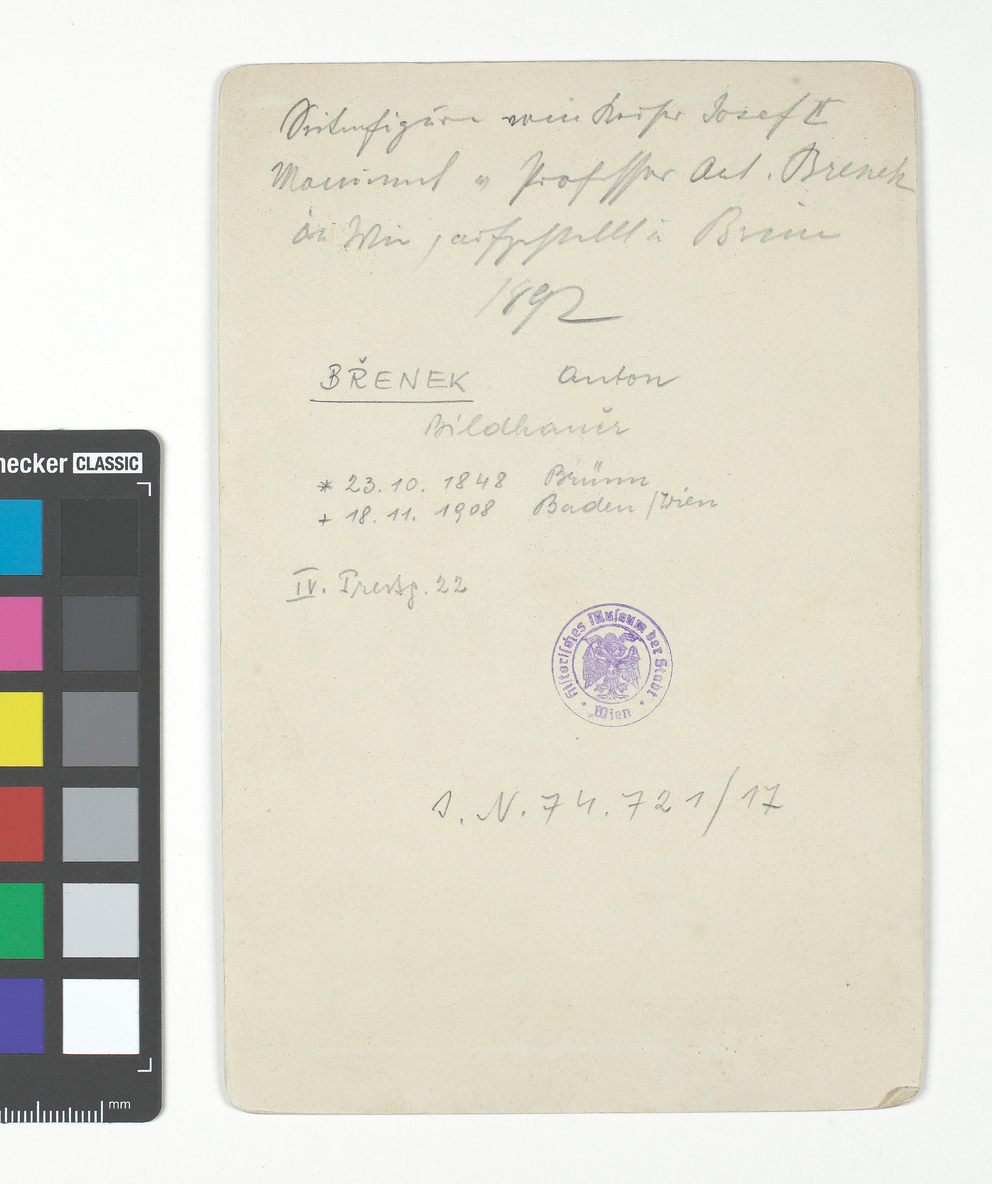 Seitenfiguren vom Kaiser Josef II
Monument v Professor Ant. Brenek
in Wien, aufgestellt in Brünn
1892
BŘENEK Anton
Bildhauer
* 23.10.1848 Brünn
+ 18.11.1908 Baden/Wien
IV. Pressg. 22
Historisches Museum der Stadt
Wien
I.N.74.721/17
hecker CLASSIC
mm